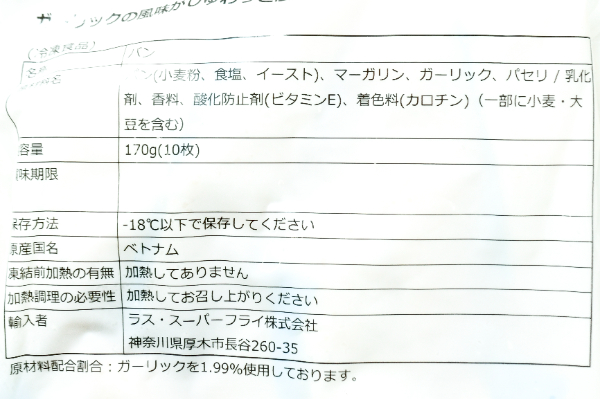 ガーリックの風味がじゅわっと
(冷凍食品)
名 パン
パン(小麦粉、食塩、イースト)、マーガリン、ガーリック、パセリ / 乳化
剤、香料、酸化防止剤(ビタミンE)、着色料(カロチン) (一部に小麦・大
豆を含む)
容量 170g(10枚)
味期限
保存方法 -18℃以下で保存してください
原産国名 ベトナム
凍結前加熱の有無 加熱してありません
加熱調理の必要性 加熱してお召し上がりください
輸入者 ラス・スーパーフライ株式会社
神奈川県厚木市長谷260-35
原材料配合割合：ガーリックを1.99%使用しております。